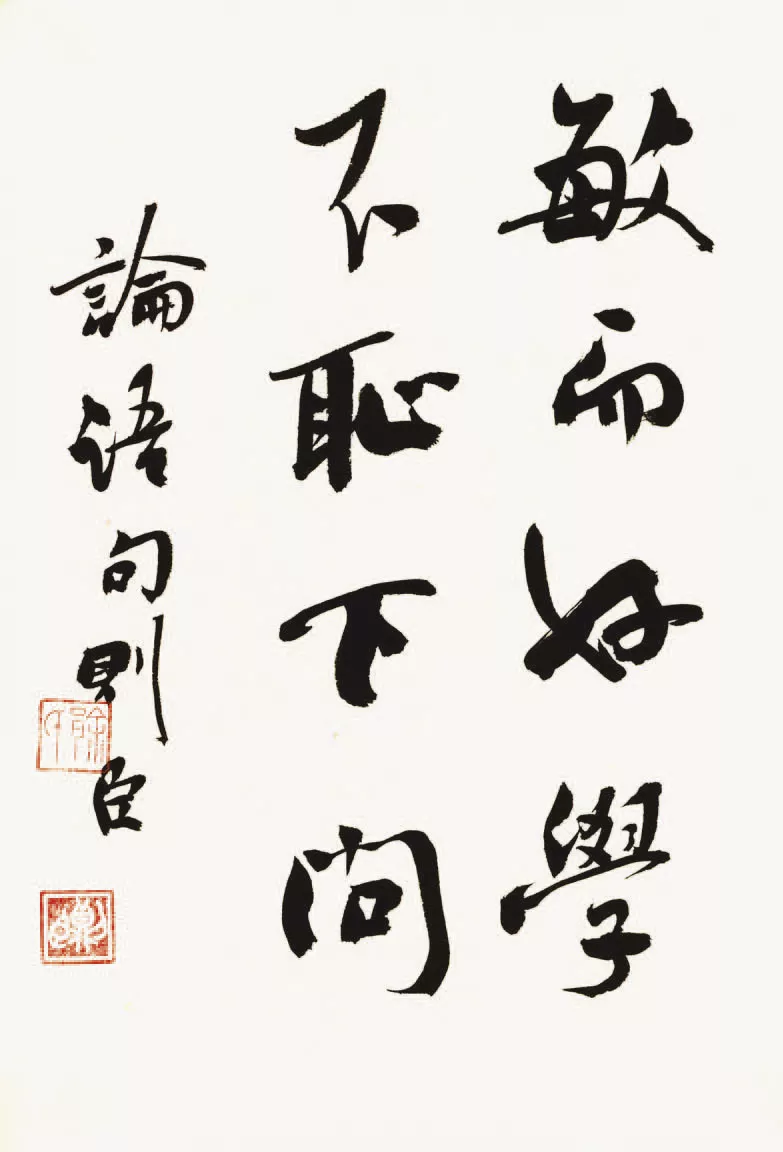 敏而好學
不恥下問
論語句則臣